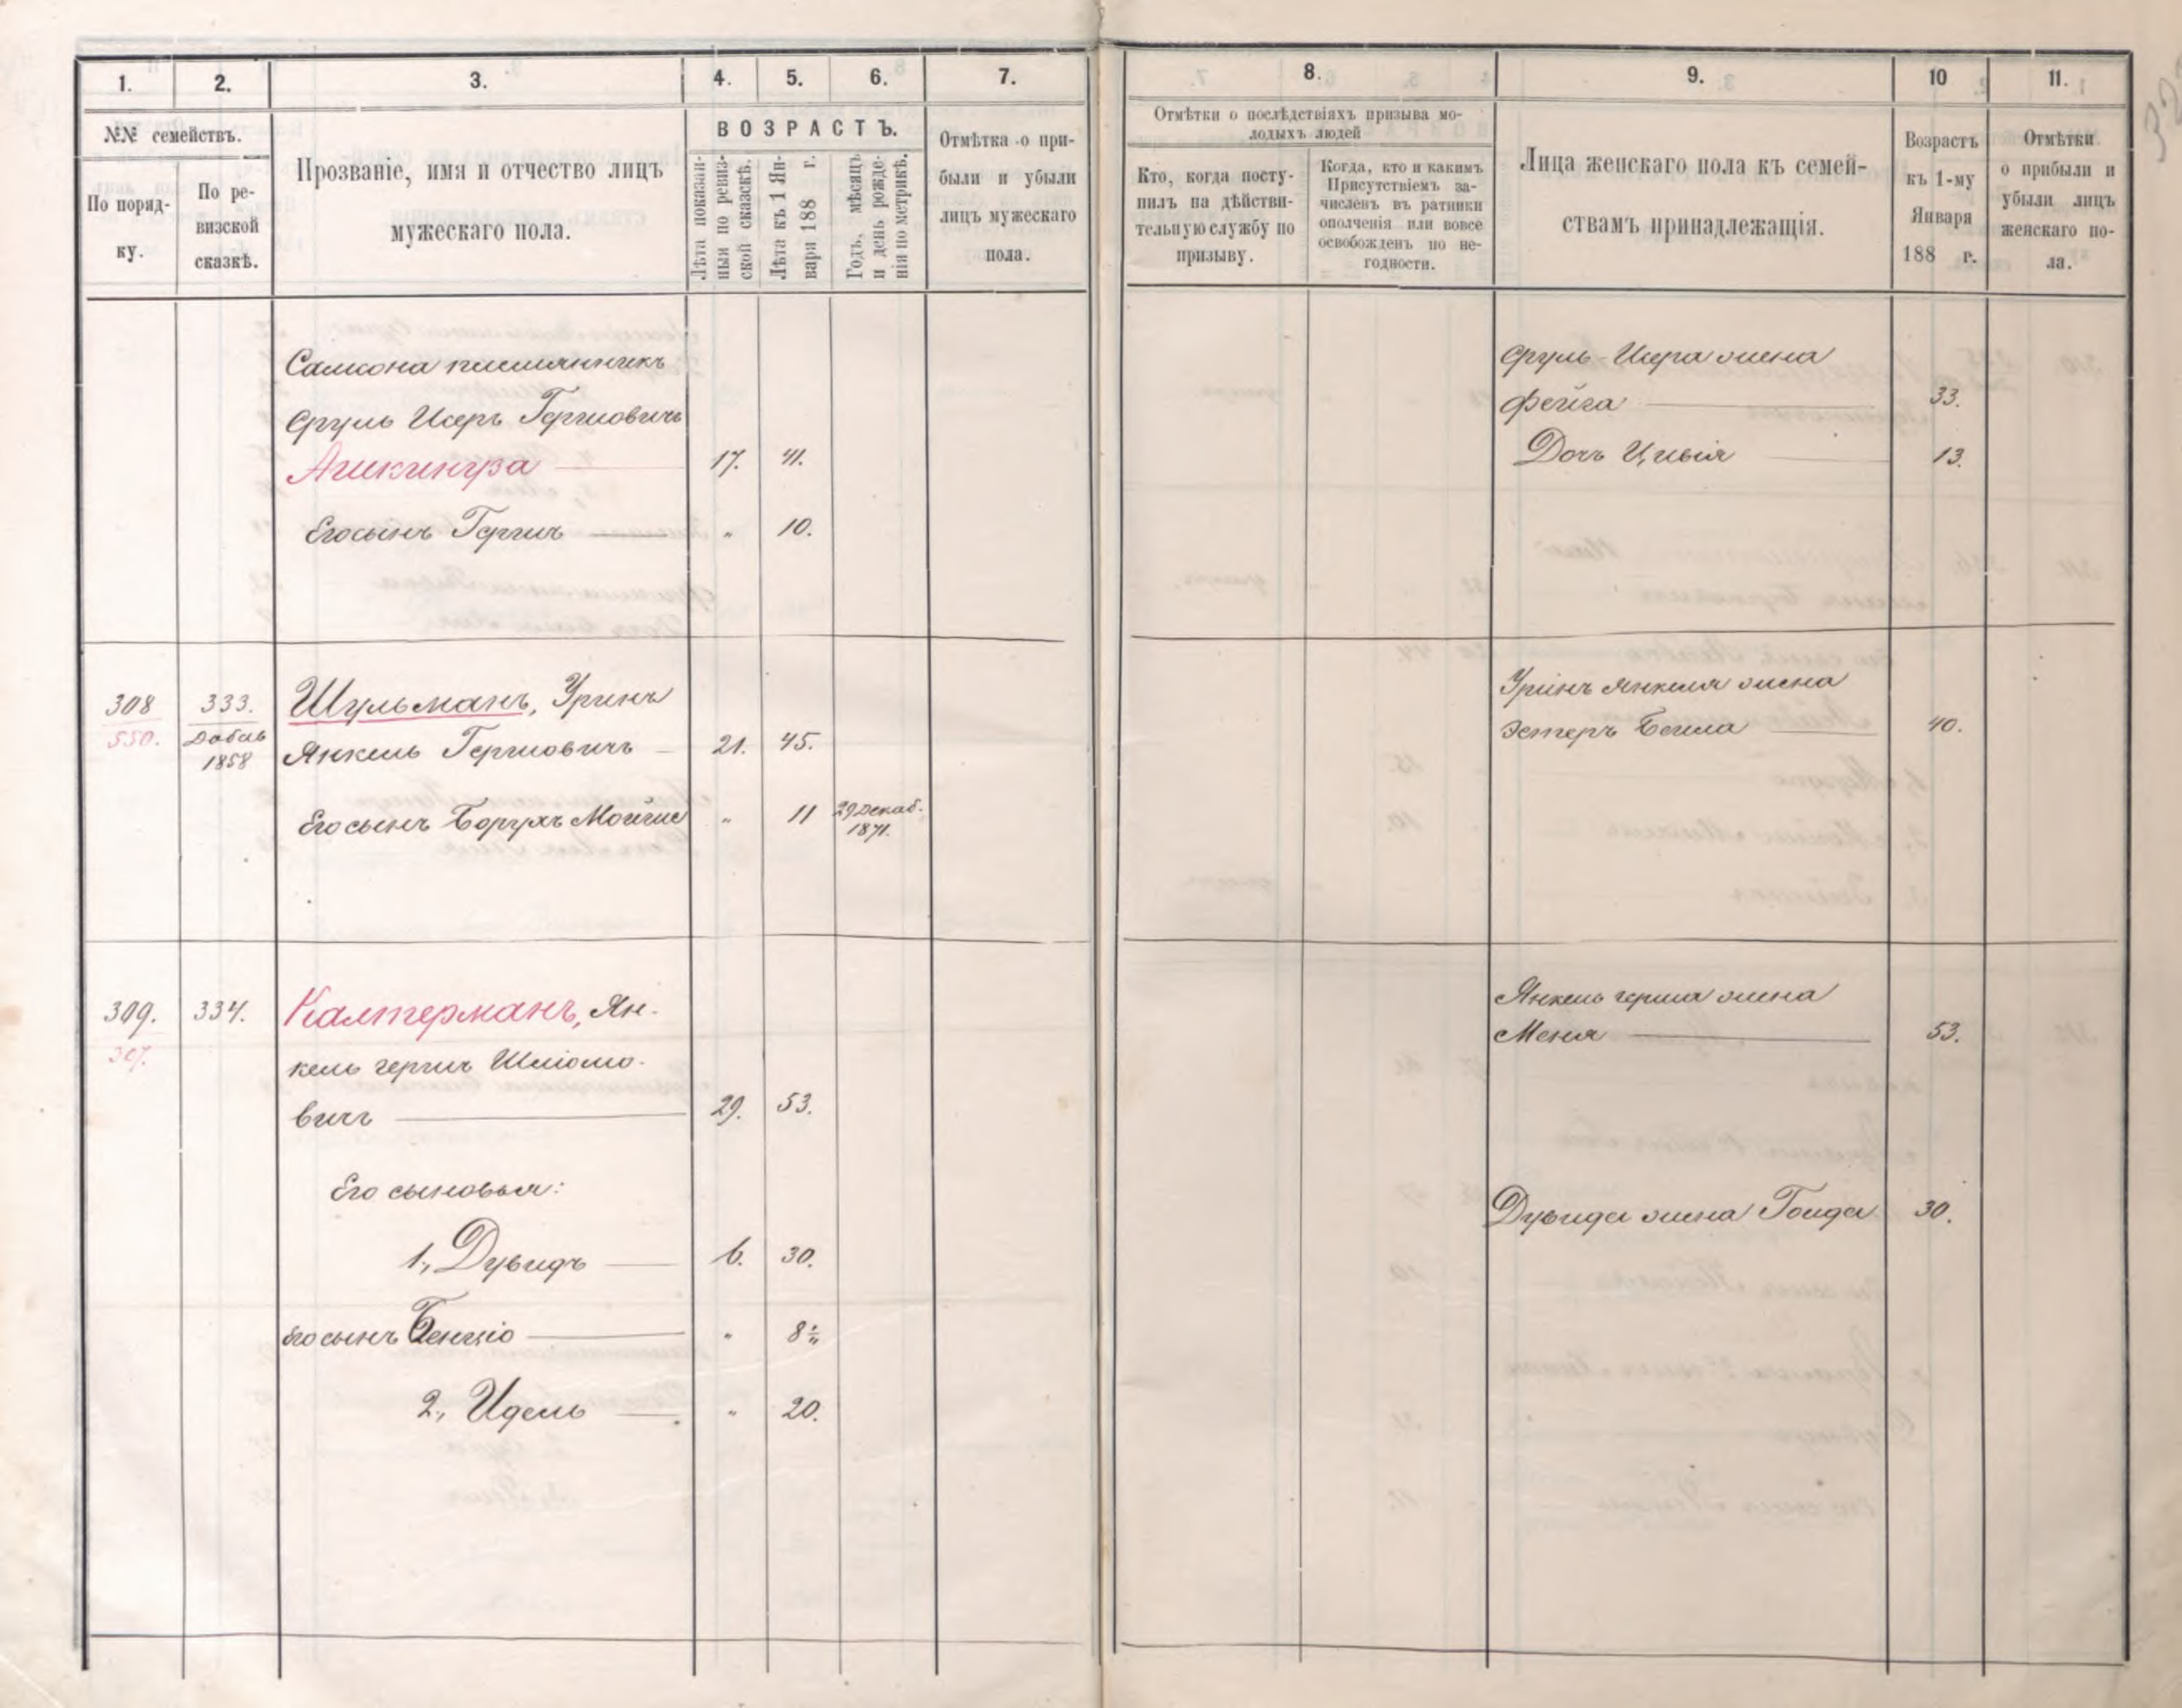 1.
2.
3.
4.
5.
6.
7.
№№ семействъ.
По поряд-
ку.
По ре-
визской
сказкѣ.
Прозваніе, имя и отчество лицъ
мужескаго пола.
ВОЗРАСТЪ.
Лѣта показан-
ныя по ревиз-
ской сказкѣ.
Лѣта къ 1 Ян-
варя 188 г.
Годъ, мѣсяцъ
и день рожде-
нія по метрикѣ.
Отмѣтка о при-
были и убыли
лицъ мужескаго
пола.
Самсона племянникъ
Сруль Исеръ Гершовичъ
17. 41.
Его сынъ Гершъ " 10.
308 333. Шульманъ, Уринъ
550. Добав
1858
Янкель Гершовичъ 21. 45.
Его сынъ Борухъ Мойше " 11 29 Декаб.
1871.
309. 334. Калтерманъ, Ян-
307.
кель Гершъ Шліомо-
вичъ 29. 53.
Его сыновья:
1., Дувидъ 6. 30.
Его сынъ Бенціо " 8
2., Идель " 20.
8.
9.
10
11.
Отмѣтки о послѣдствіяхъ призыва мо-
лодыхъ людей
Кто, когда посту-
пилъ на дѣйстви-
тельную службу по
призыву.
Когда, кто и какимъ
Присутствіемъ за-
численъ въ ратники
ополченія или вовсе
освобожденъ по не-
годности.
Лица женскаго пола къ семей-
ствамъ принадлежащія.
Возрастъ
къ 1-му
Января
188 г.
Отмѣтки
о прибыли и
убыли лицъ
женскаго по-
ла.
Сруль Исера жена
Фейга 33.
Дочь Цивія 13.
Уринъ Янкеля жена
Эстеръ Бейла 40.
Янкель Герша жена
Меня 53.
Дувида жена Голда 30.